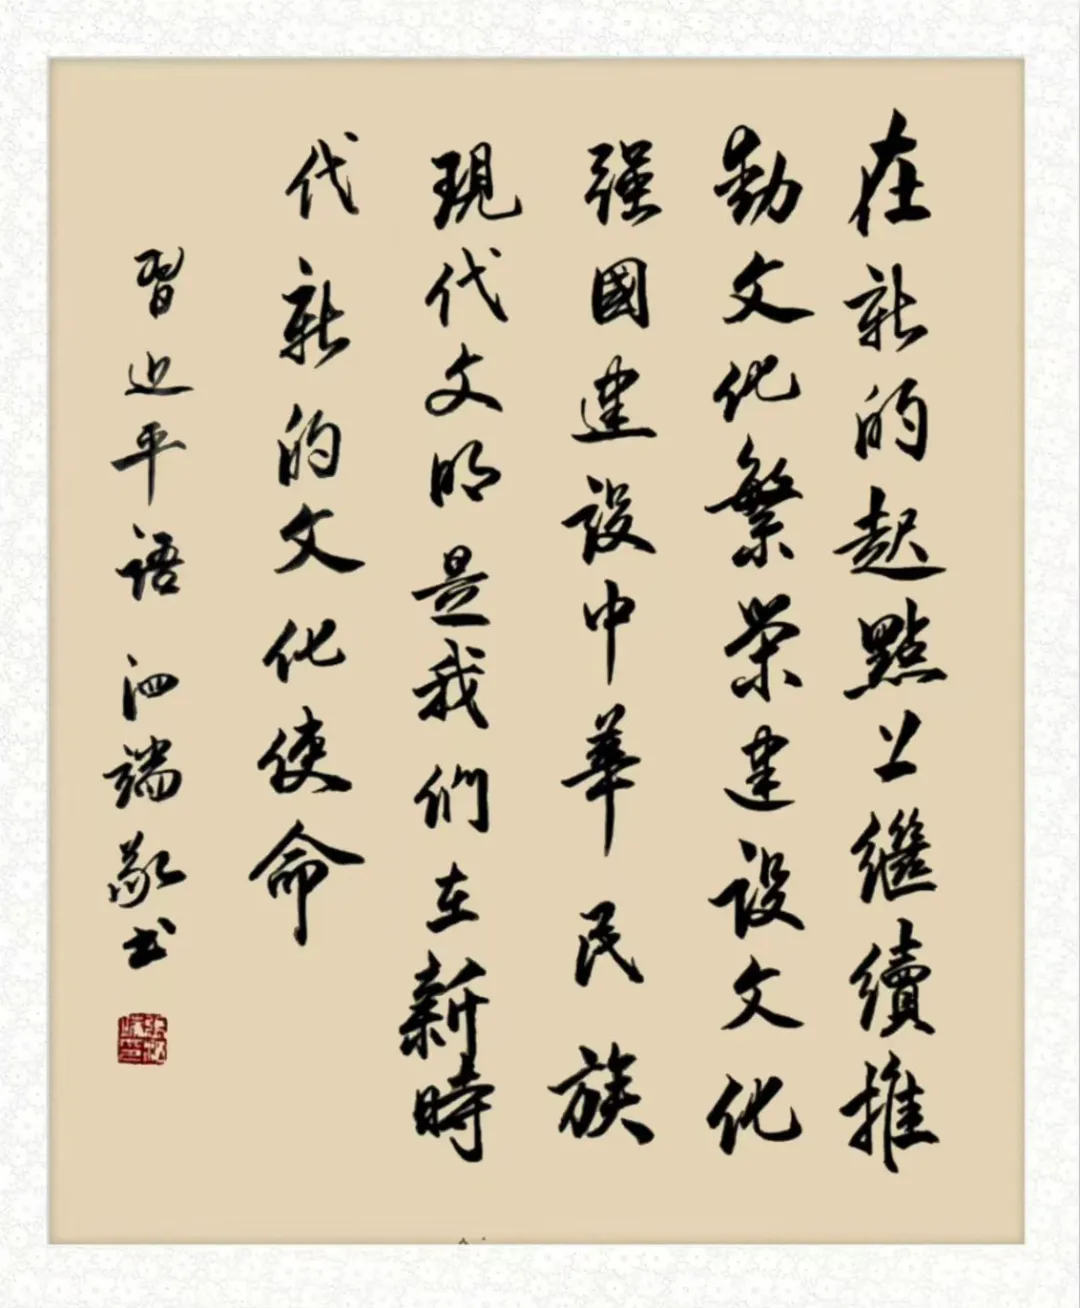 在新的起點上繼續推
動文化繁榮建設文化
强國建設中華民族
現代文明是我們在新時
代新的文化使命
習近平語 泗端敬书